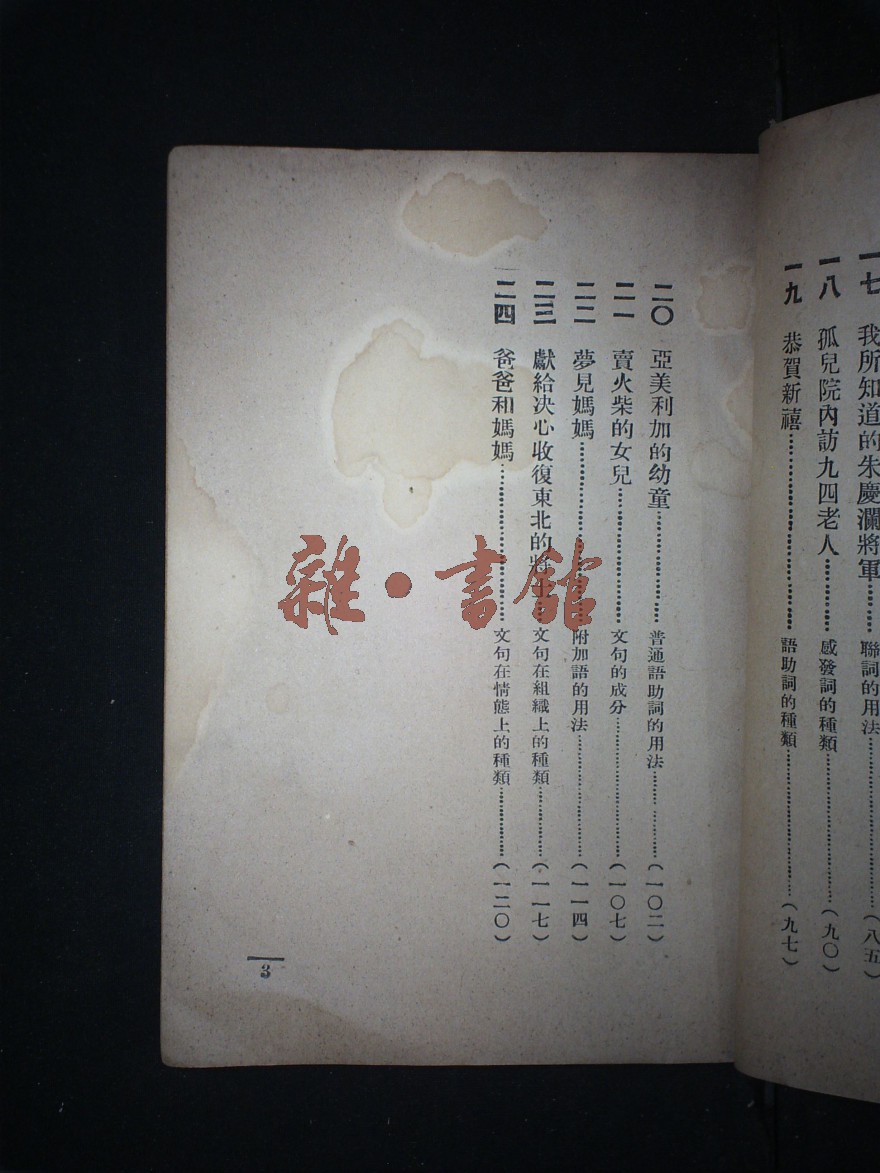 一七 我所知道的朱慶瀾將軍………聯詞的用法………(八五)
一八 孤兒院內訪九四老人………感發詞的種類………(九〇)
一九 恭賀新禧………語助詞的種類………(九七)
二〇 亞美利加的幼童………普通語助詞的用法………(一〇二)
二一 賣火柴的女兒………文句的成分………(一〇七)
二二 夢見媽媽………附加語的用法………(一一四)
二三 獻給決心收復東北的將士………文句在組織上的種類………(一一七)
二四 爸爸和媽媽………文句在情態上的種類………(一二〇)
3
雜·書館